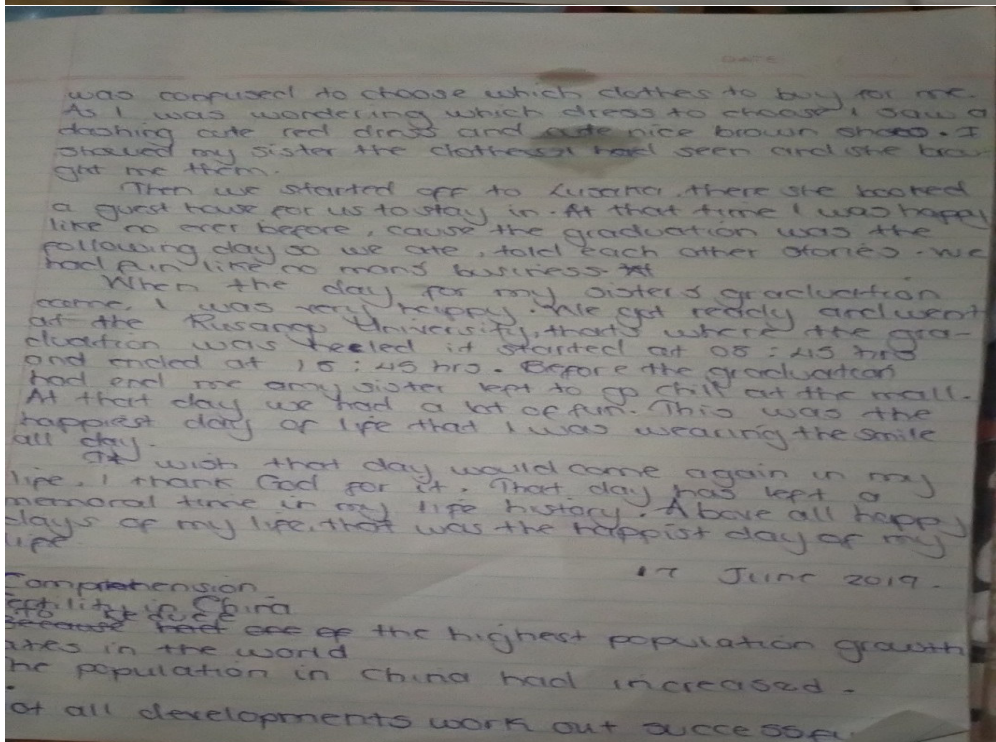 DATE
was confused to choose which clothes to buy for me.
As I was wordering which dress to choose I saw a
dashing cute red dress and nice brown shoes. I
showed my sister the clothes I had seen and she brou
ght me them.
Then we started off to Lusaka, there she booked
a guest house for us to stay in. At that time I was happy
like no ever before, cause the graduation was the
following day so we ate, told each other stories. we
had fun like no mans business.
When the day for my sisters graduation
came, I was very happy. We got ready and went
at the Rusangu University, thats where the gra-
duation was heeled it started at 08:45 hrs
and ended at 15:45 hrs. Before the graduation
had end me amy sister left to go chill at the mall.
At that day we had a lot of fun. This was the
happiest day of life that I was wearing the smile
all day.
I wish that day would come again in my
life. I thank God for it. That day has left a
memoral time in my life history. Above all happy
days of my life, that was the happist day of my
life
17 June 2019.
Comprehension
in China
the highest population growth
in the world
population in China had increased.
all developments work out